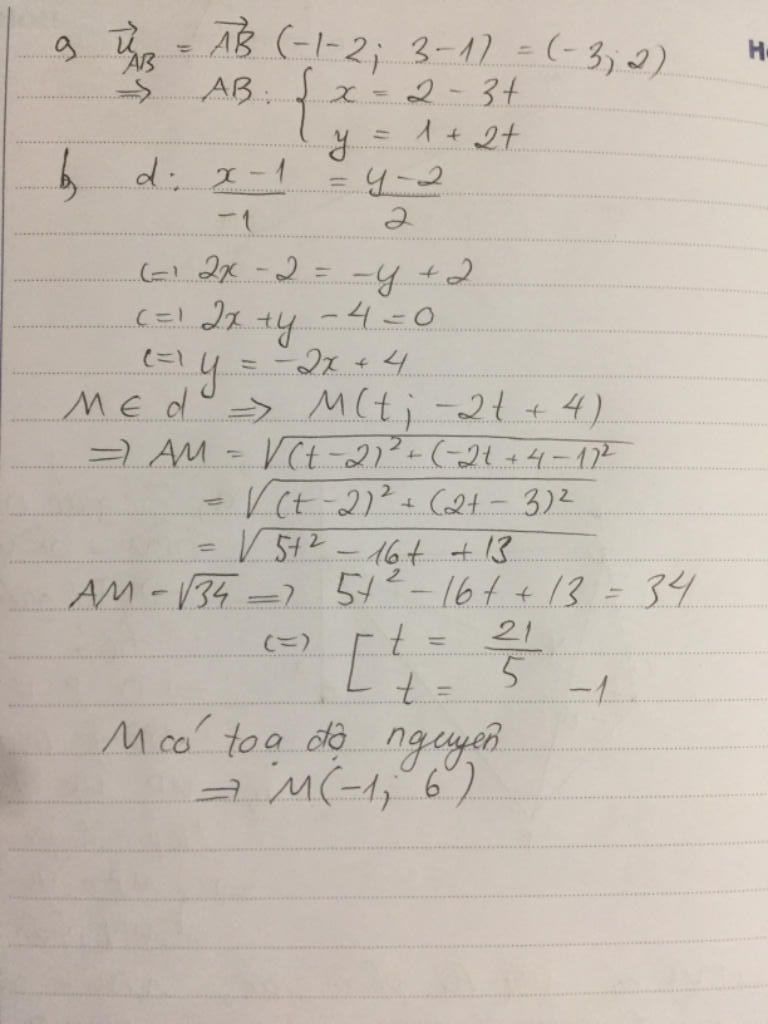 a, $\vec{u}_{AB} = \overrightarrow{AB} (-1-2; 3-1) = (-3; 2)$
$\Rightarrow AB: \begin{cases} x = 2 - 3t \\ y = 1 + 2t \end{cases}$
b, $d: \frac{x-1}{-1} = \frac{y-2}{2}$
(=) 2x - 2 = -y + 2
(=) 2x + y - 4 = 0
(=) y = -2x + 4
$M \in d \Rightarrow M(t; -2t + 4)$
$\Rightarrow AM = \sqrt{(t-2)^2 + (-2t+4-1)^2}$
$= \sqrt{(t-2)^2 + (2t-3)^2}$
$= \sqrt{5t^2 - 16t + 13}$
$AM - \sqrt{34} \Rightarrow 5t^2 - 16t + 13 = 34$
(=) $\left[ \begin{matrix} t = \frac{21}{5} \\ t = -1 \end{matrix} \right.$
M có toạ độ nguyên
$\Rightarrow M(-1; 6)$
H